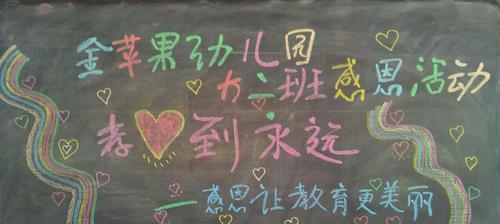 金苹果幼儿园
大二班感恩活动
孝到永远
一感恩让教育更美丽